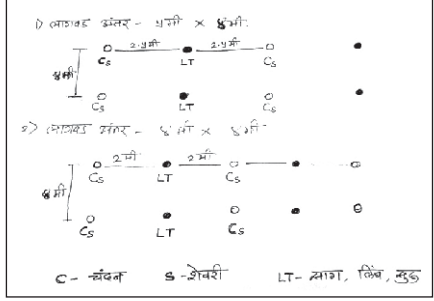 १) लागवड अंतर - ५मी × ५मी.
२.५मी २.५मी
CS LT CS
५मी
CS LT CS
२) लागवड अंतर - ४ मी × ४ मी.
२ मी २ मी
CS LT CS
४ मी
CS LT CS
C - चंदन S - शेवरी LT - साग, लिंब,